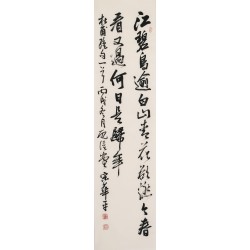 江碧鸟逾白山青花欲燃今春
看又過何日是歸年
杜甫絕句一首丙戌冬月